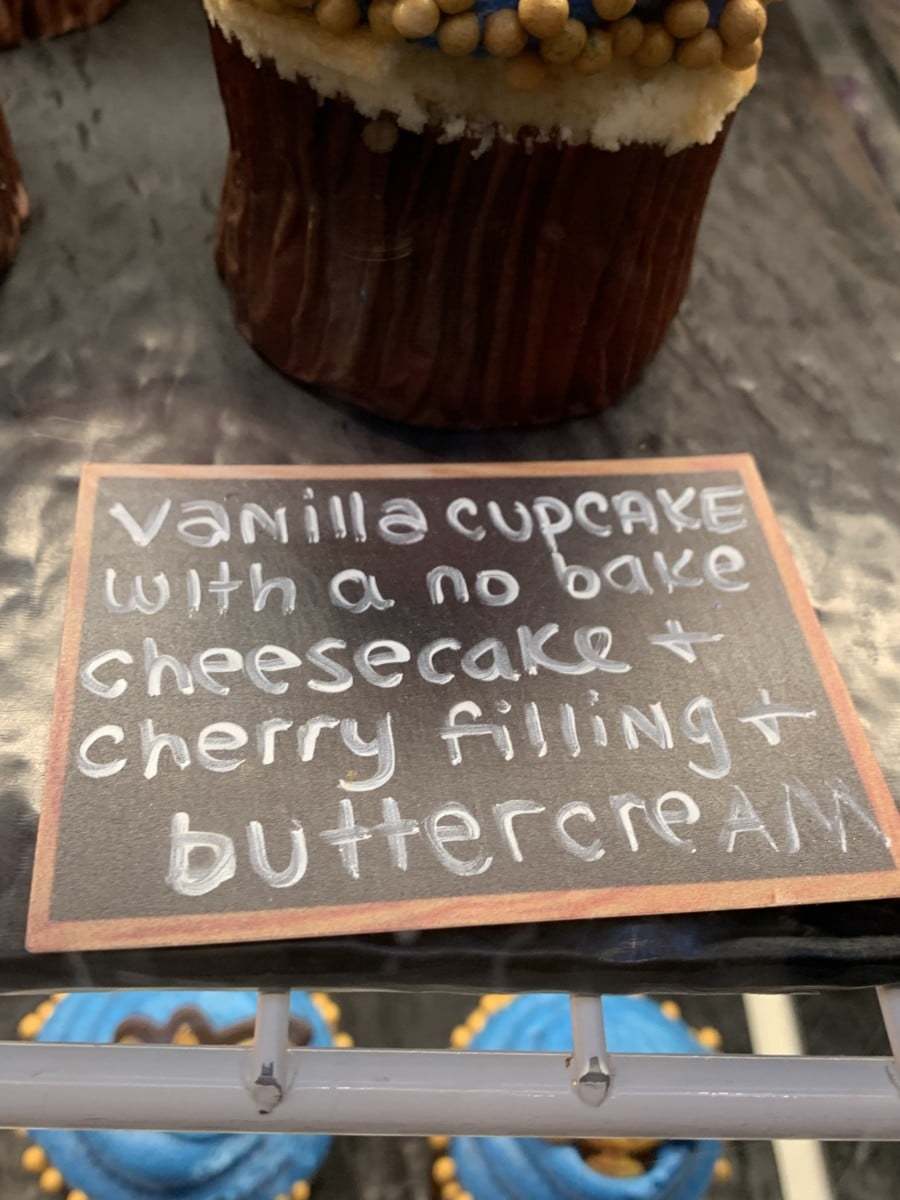 Vanilla CUPCAKE
with a no bake
cheesecake +
cherry filliNg +
buttercreAM